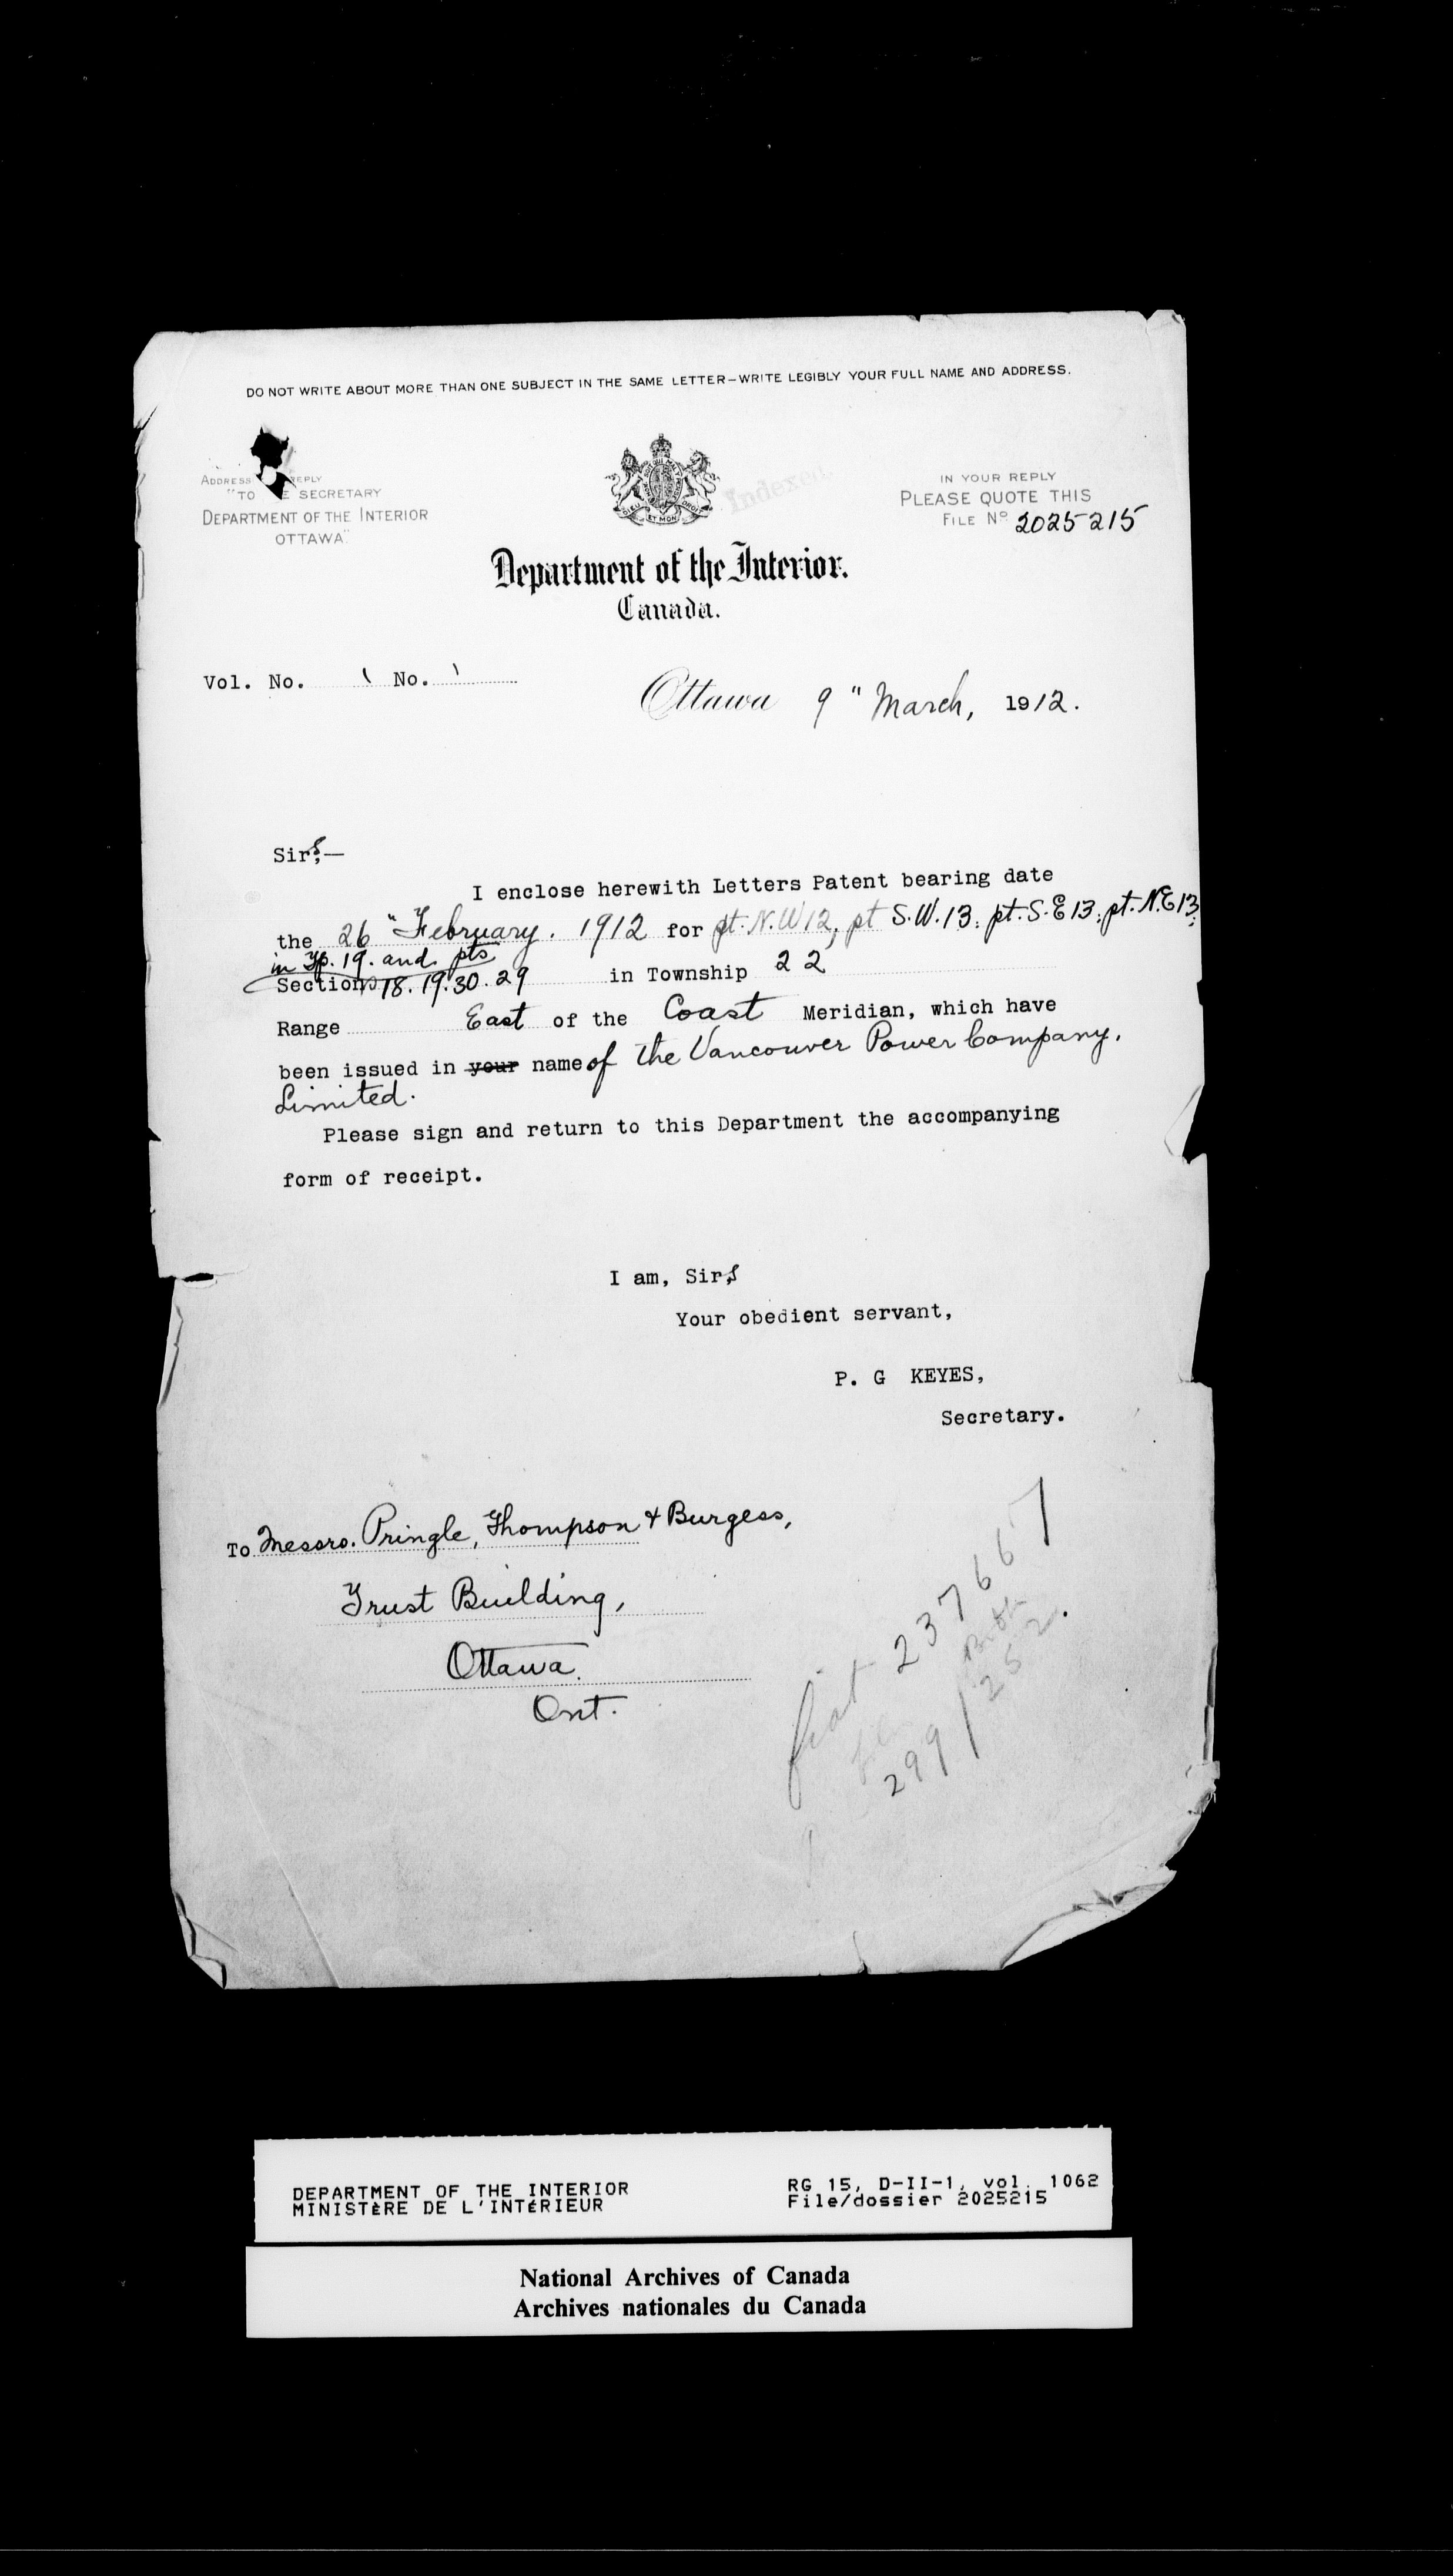 DO NOT WRITE ABOUT MORE THAN ONE SUBJECT IN THE SAME LETTER—WRITE LEGIBLY YOUR FULL NAME AND ADDRESS.
ADDRESS REPLY
"TO E SECRETARY
DEPARTMENT OF THE INTERIOR
OTTAWA"
Indexed.
IN YOUR REPLY
PLEASE QUOTE THIS
FILE No 2025215
DIEU ET MON DROIT
Department of the Interior.
Canada.
Vol. No. 1 No. 1
Ottawa 9" March, 1912.
Sirs;—
I enclose herewith Letters Patent bearing date
the 26" February. 1912 for pt. N.W 12, pt S.W. 13: pt. S.E 13: pt. N.E 13:
in Tp. 19. and pts
Sections 18. 19. 30. 29 in Township 22
Range East of the Coast Meridian, which have
been issued in your name of the Vancouver Power Company,
Limited.
Please sign and return to this Department the accompanying
form of receipt.
I am, Sirs,
Your obedient servant,
P. G KEYES,
Secretary.
To Messrs. Pringle, Thompson & Burgess,
Trust Building,
Ottawa.
Ont.
fiat 237667
299/252.
DEPARTMENT OF THE INTERIOR
MINISTÈRE DE L'INTÉRIEUR
RG 15, D-II-1, vol. 1062
File/dossier 2025215
National Archives of Canada
Archives nationales du Canada